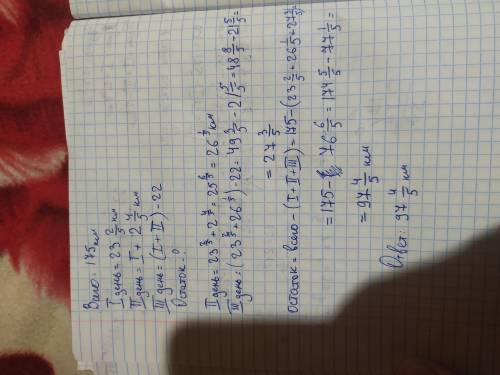 Всего: 175 км
I день = 23 2/5 км
II день = I + 2 4/5 км
III день = (I + II) - 22
Остаток - ?
II день = 23 2/5 + 2 4/5 = 25 6/5 = 26 1/5 км
III день = (23 2/5 + 26 1/5) - 22 = 49 3/5 - 21 5/5 = 48 8/5 - 21 5/5 =
= 27 3/5
Остаток = всего - (I + II + III) = 175 - (23 2/5 + 26 1/5 + 27 3/5) =
= 175 - 76 6/5 = 174 5/5 - 77 1/5 =
= 97 4/5 км
Ответ: 97 4/5 км